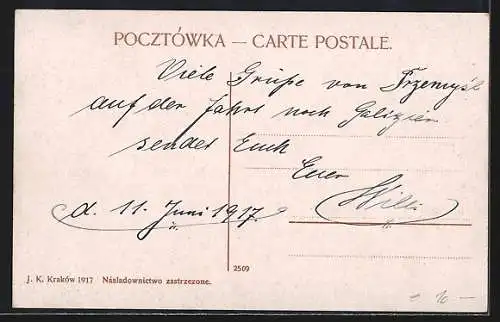 POCZTÓWKA — CARTE POSTALE.
Viele Grüße von Przemyśl
auf der Fahrt nach Galizien
sendet Euch
Euer
Willi
d. 11. Juni 1917.
2509
J. K. Kraków 1917 Násladownictwo zastrzezone.